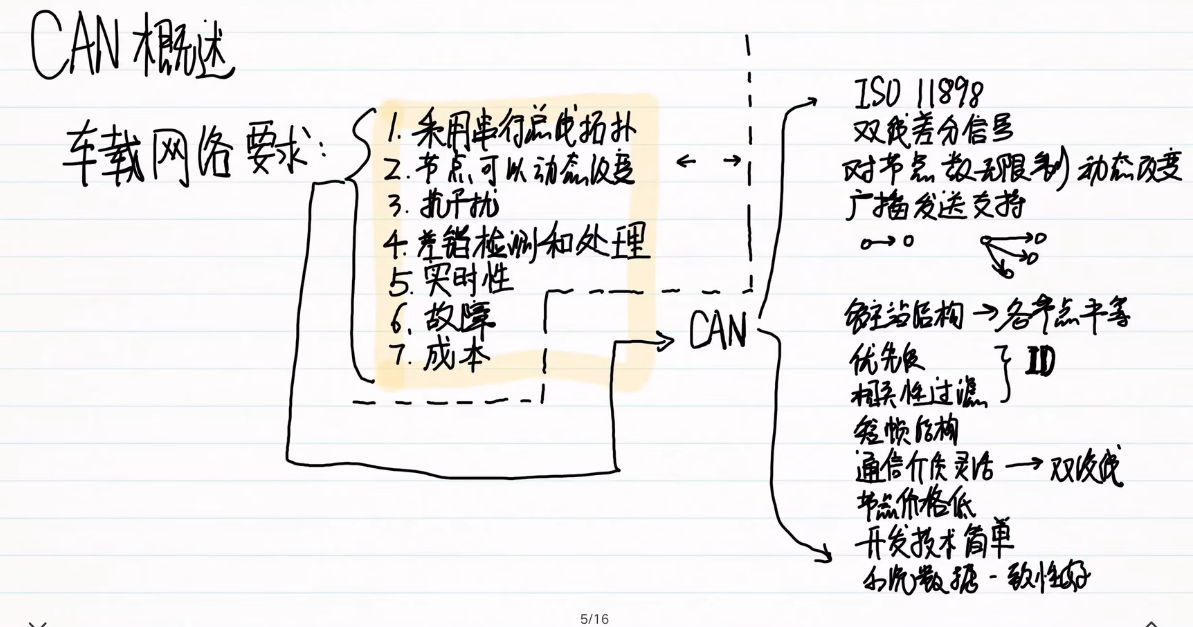 CAN概述
车载网络要求:
1. 采用串行总线拓扑
2. 节点可以动态改变
3. 抗干扰
4. 差错检测和处理
5. 实时性
6. 故障
7. 成本
CAN
ISO 11898
双线差分信号
对节点数无限制 动态改变
广播发送支持
多主站结构 → 各节点平等
优先级
相关性过滤
ID
短帧结构
通信介质灵活 → 双绞线
节点价格低
开发技术简单
系统数据一致性好
5/16